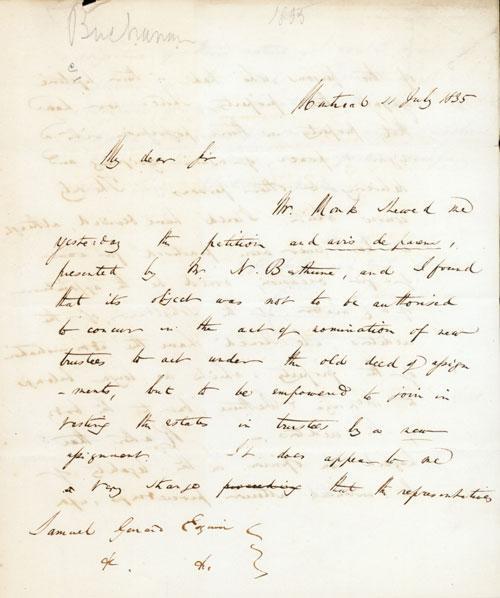 Buchanan 1835
Montreal 11 July 1835
My dear Sir
Mr. Monk shewed me
yesterday the petition and avis de parens,
presented by Mr. N. Bethune, and I found
that its object was not to be authorised
to concur in the act of nomination of new
trustees to act under the old deed of assign
-ments, but to be empowered to join in
vesting the estates in trustees by a new
assignment. It does appear to me
a very strange proceeding that the representatives
Samuel Gerard Esquire
&c. &c.